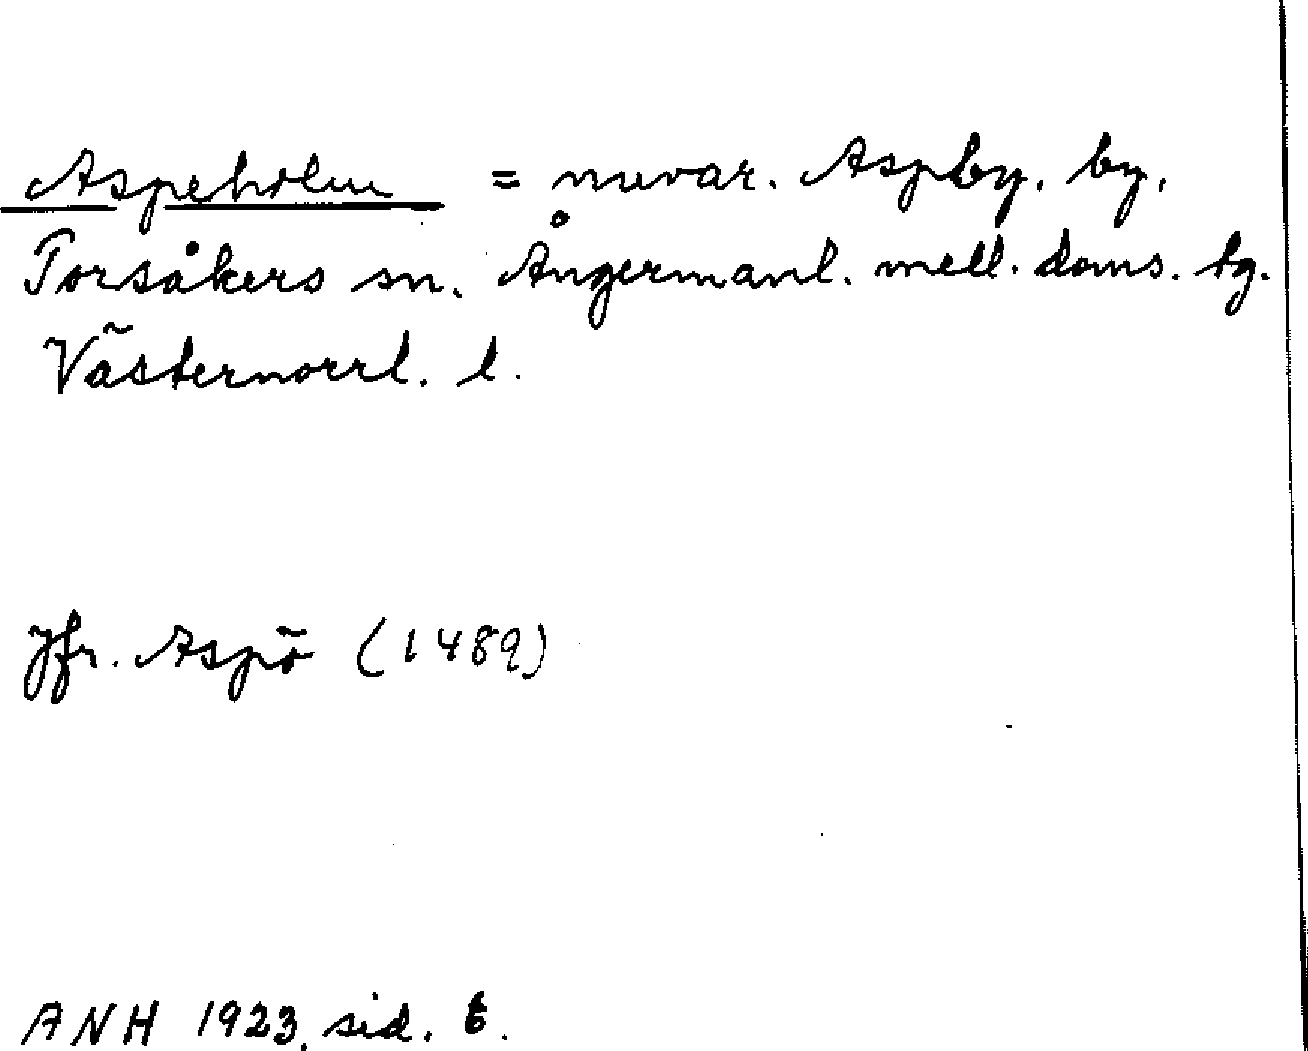 Aspeholm = nuvar. Aspby, by,
Torsåkers sn. Ångermanl. mell. doms. tg.
Västernorrl. l.
Jfr. Aspö (1489)
ANH 1923. sid. 6.